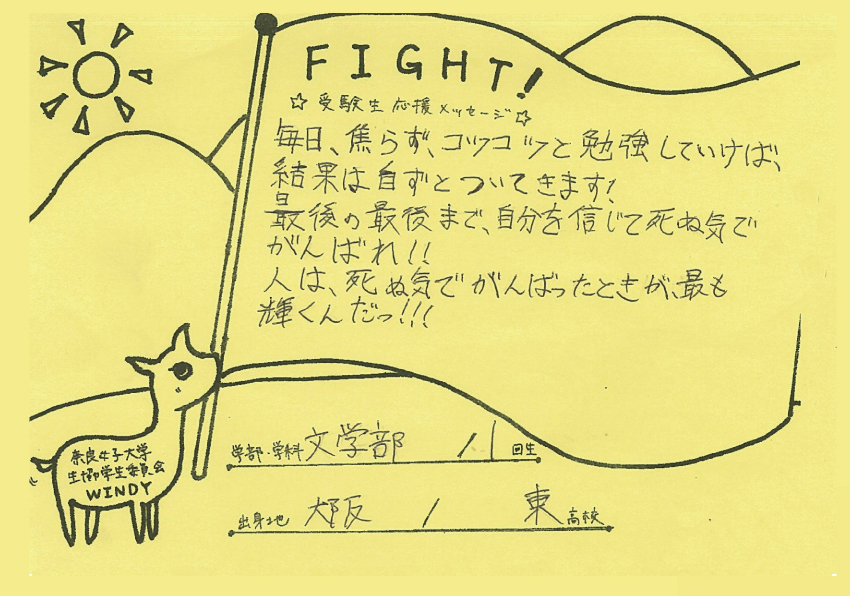 FIGHT!
☆ 受験生 応援 メッセージ☆
毎日、焦らず、コツコツと勉強していけば、
結果は自ずとついてきます!
最後の最後まで、自分を信じて死ぬ気で
がんばれ!!
人は、死ぬ気でがんばったときが、最も
輝くんだっ!!!
学部・学科 文学部 / 1 回生
出身地 大阪 / 東 高校
奈良女子大学
生協学生委員会
WINDY